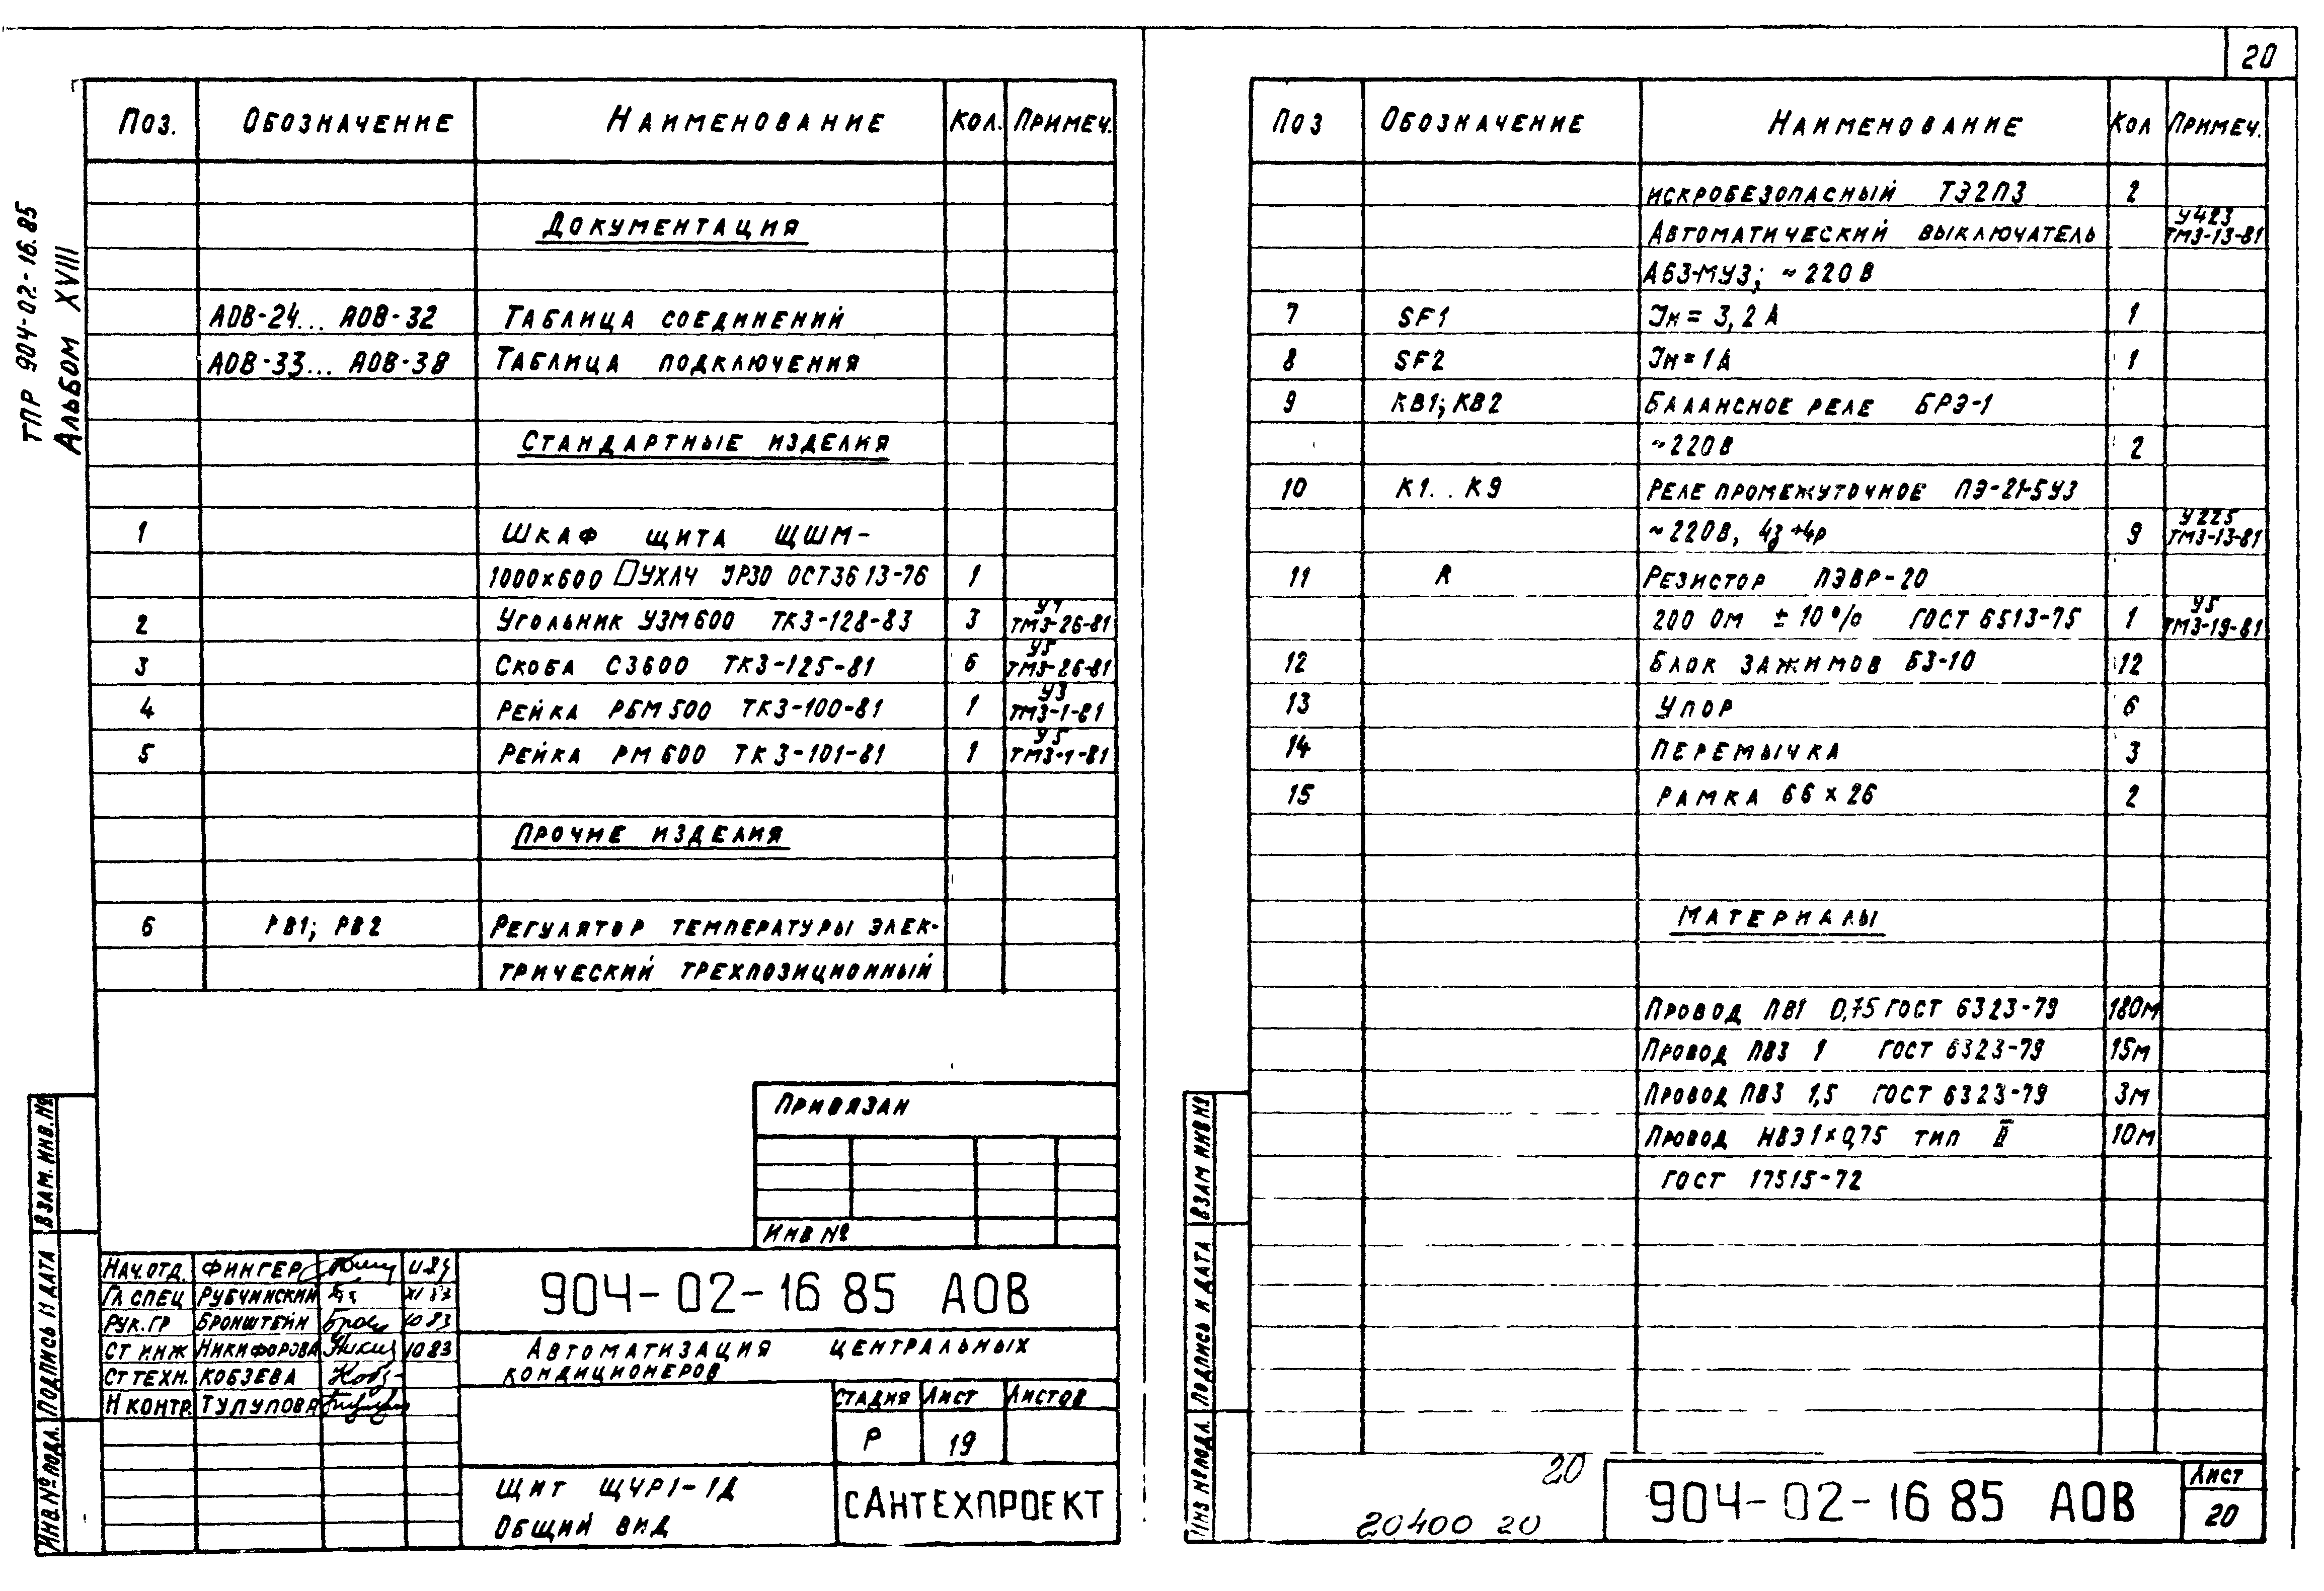 20
ТПР 904-02-16.85
Альбом XVIII
Поз. Обозначение Наименование Кол. Примеч.
Документация
АОВ-24... АОВ-32 Таблица соединений
АОВ-33... АОВ-38 Таблица подключения
Стандартные изделия
1 Шкаф щита ЩШМ-
1000×600 □УХЛ4 IP30 ОСТ36 13-76 1
2 Угольник УЗМ600 ТК3-128-83 3 У4 ТМ3-26-81
3 Скоба С3600 ТК3-125-81 6 У5 ТМ3-26-81
4 Рейка РБМ500 ТК3-100-81 1 У3 ТМ3-1-81
5 Рейка РМ600 ТК3-101-81 1 У5 ТМ3-1-81
Прочие изделия
6 РВ1; РВ2 Регулятор температуры элек-
трический трехпозиционный
Привязан
Инв №
Взам. инв. №
Подпись и дата
Инв. № подл.
Нач. отд. Фингер
Гл спец Рубчинский XI 83
Рук. гр Бронштейн 10 83
Ст инж Никифорова 10 83
Ст техн. Кобзева
Н контр. Тулупова
904-02-16 85 АОВ
Автоматизация центральных
кондиционеров
Стадия Лист Листов
Р 19
Щит ЩЧР1-1Д
Общий вид
САНТЕХПРОЕКТ
Поз Обозначение Наименование Кол Примеч.
искробезопасный ТЭ2П3 2
Автоматический выключатель У423 ТМ3-13-81
А63-МУ3; ~220В
7 SF1 Iн = 3,2 А 1
8 SF2 Iн = 1 А 1
9 КВ1; КВ2 Балансное реле БРЭ-1
~220В 2
10 К1. . К9 Реле промежуточное ПЭ-21-5У3
~220В, 4з+4р 9 У225 ТМ3-13-81
11 R Резистор ПЭВР-20
200 Ом ±10% ГОСТ 6513-75 1 У5 ТМ3-19-81
12 Блок зажимов БЗ-10 12
13 Упор 6
14 Перемычка 3
15 Рамка 66×26 2
Материалы
Провод ПВ1 0,75 ГОСТ 6323-79 180м
Провод ПВ3 1 ГОСТ 6323-79 15м
Провод ПВ3 1,5 ГОСТ 6323-79 3м
Провод НВЭ 1×0,75 тип II 10м
ГОСТ 17515-72
Взам инв №
Подпись и дата
Инв № подл.
20
20400 20
904-02-16 85 АОВ
Лист
20